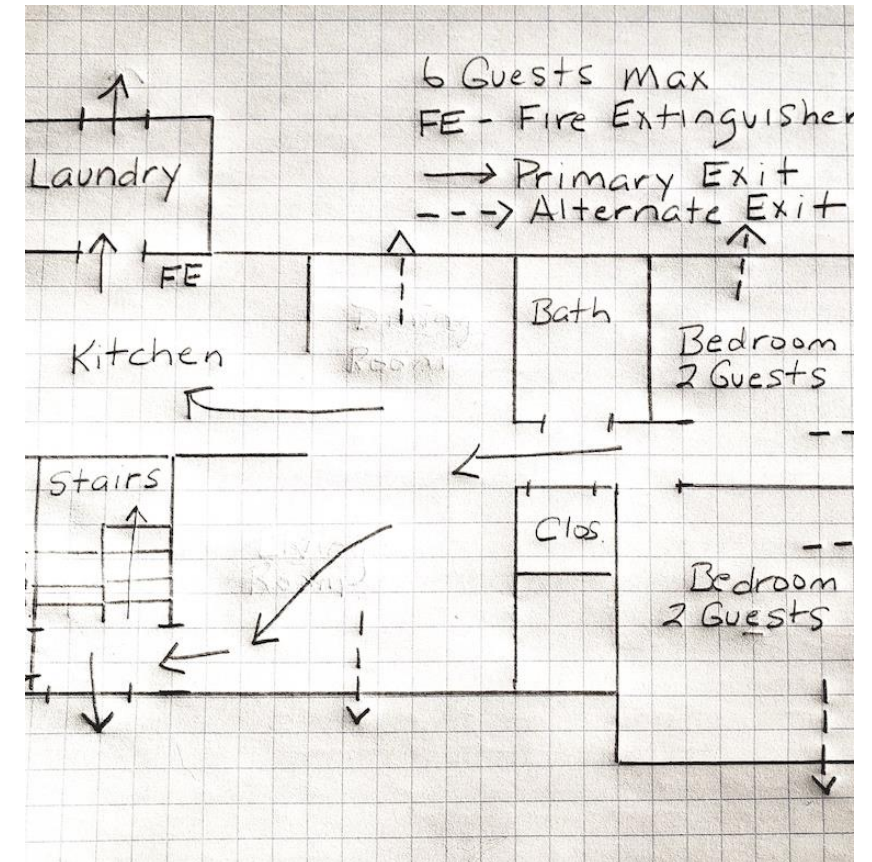 6 Guests max
FE - Fire Extinguisher
Primary Exit
Alternate Exit
Laundry
FE
Kitchen
Room
Bath
Bedroom
2 Guests
Stairs
Clos.
Bedroom
2 Guests